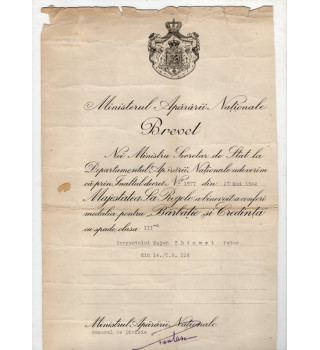 Ministerul Apărării Naționale
Brevet
Noi Ministru Secretar de Stat la
Departamentul Apărării Naționale adeverim
că prin Înaltul decret No 1577 din 27 Mai 1942
Majestatea Sa Regele a binevoit a conferi
medalia pentru Bărbăție și Credință
cu spade clasa III-a
Thiemel Peter
din
Ministrul Apărării Naționale
General de Divizie